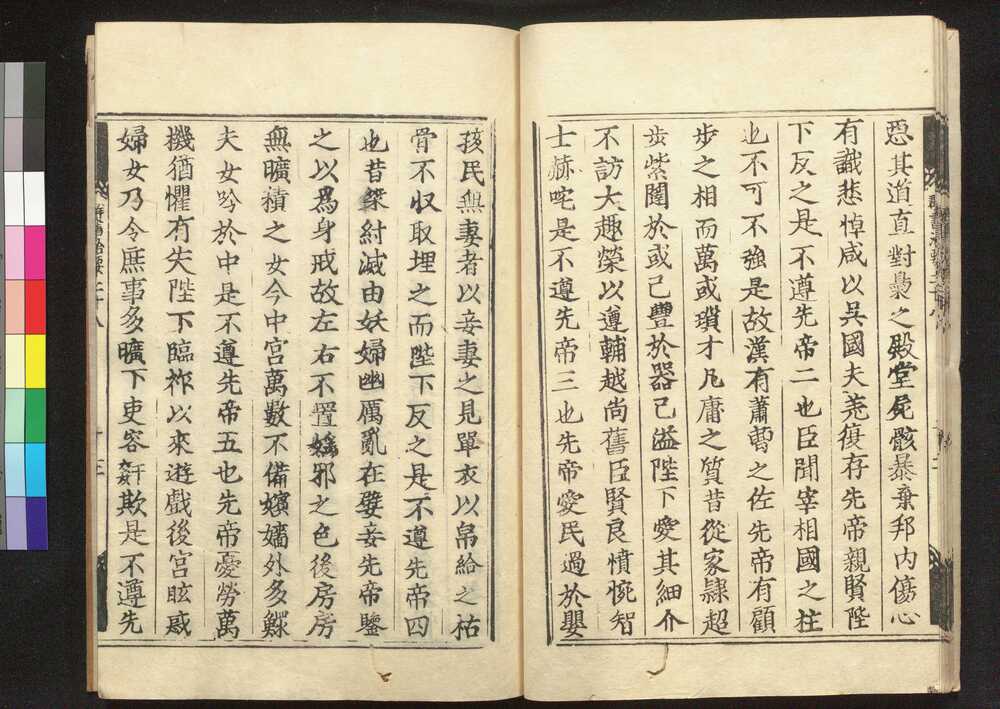 惡其道直對梟之殿堂屍骸暴棄邦內傷心
有識悲悼咸以吳國夫差復存先帝親賢陛
下反之是不遵先帝二也臣聞宰相國之柱
也不可不強是故漢有蕭曹之佐先帝有顧
步之相而萬彧瑣才凡庸之質昔從家隸超
步紫闥於彧已豐於器已溢陛下愛其細介
不訪大趣榮以遵輔越尚舊臣賢良憤惋智
士赫咤是不遵先帝三也先帝愛民過於嬰
孩民無妻者以妾妻之見單衣以帛給之枯
骨不収取埋之而陛下反之是不遵先帝四
也昔桀紂滅由妖婦幽厲亂在嬖妾先帝鑒
之以爲身戒故左右不置婬邪之色後房房
無曠積之女今中宮萬數不備嬪嬙外多鰥
夫女吟於中是不遵先帝五也先帝憂勞萬
機猶懼有失陛下臨祚以來遊戲後宮眩惑
婦女乃令庶事多曠下吏容姧欺是不遵先
羣書治要二十八
十三